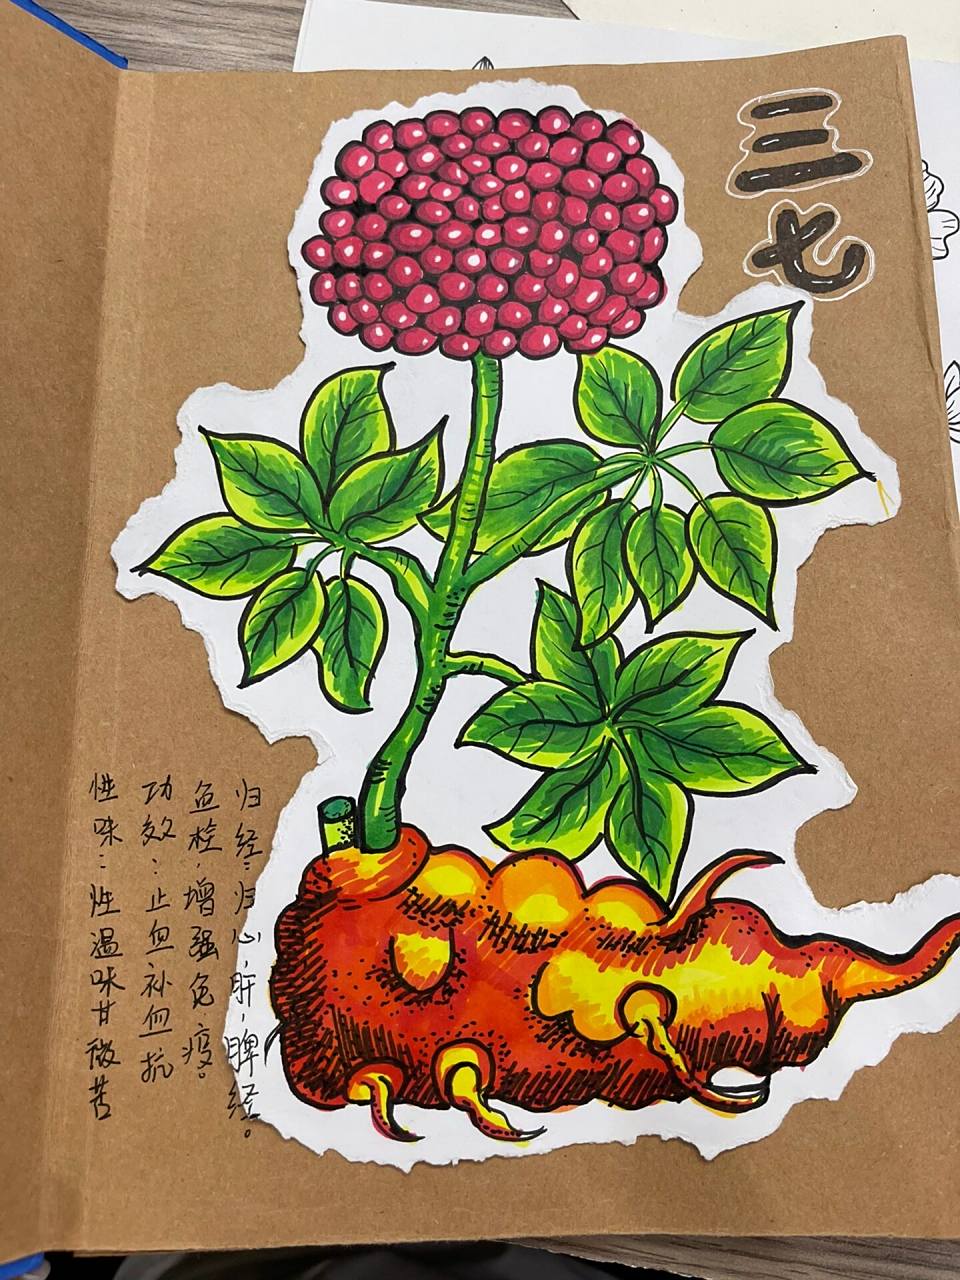 三七
性味：性温味甘微苦
功效：止血补血抗
血栓，增强免疫。
归经：归心，肝，脾经。